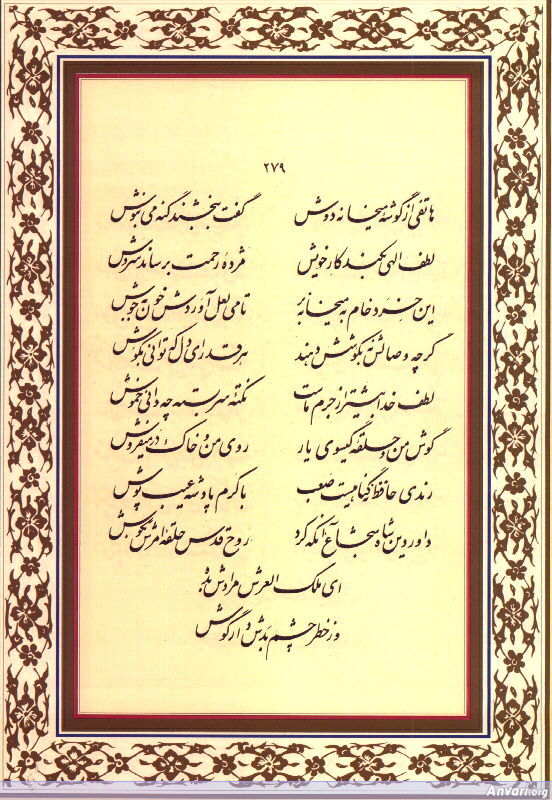 ۲۷۹
هاتفی از گوشه میخانه دوش گفت ببخشند گنه می بنوش
لطف الهی بکند کار خویش مژده رحمت برساند سروش
این خرد خام به میخانه بر تا می لعل آوردش خون به جوش
گرچه وصالش نه بکوشش دهند هر قدر ای دل که توانی بکوش
لطف خدا بیشتر از جرم ماست نکته سربسته چه دانی خموش
گوش من و حلقه گیسوی یار روی من و خاک در میفروش
رندی حافظ نه گناهیست صعب با کرم پادشه عیب پوش
داور دین شاه شجاع آنکه کرد روح قدس حلقه امرش بگوش
ای ملک العرش مرادش بده
وز خطر چشم بدش دار گوش
Anvari.org